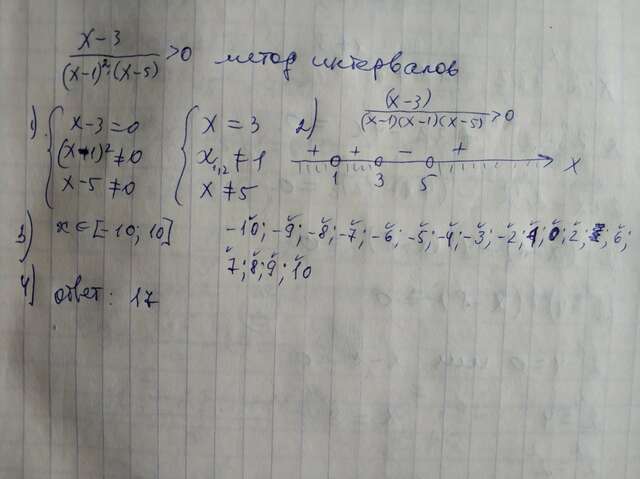 (x-3)/((x-1)²·(x-5)) > 0 метод интервалов
1) { x-3=0 { x = 3 2) (x-3)/((x-1)(x-1)(x-5)) > 0
(x-1)² ≠ 0 x₁,₂ ≠ 1 + + - + x
x-5 ≠ 0 x ≠ 5 1 3 5
3) x ∈ [-10; 10] -10; -9; -8; -7; -6; -5; -4; -3; -2; 0; 2; 6;
7; 8; 9; 10
4) ответ: 17